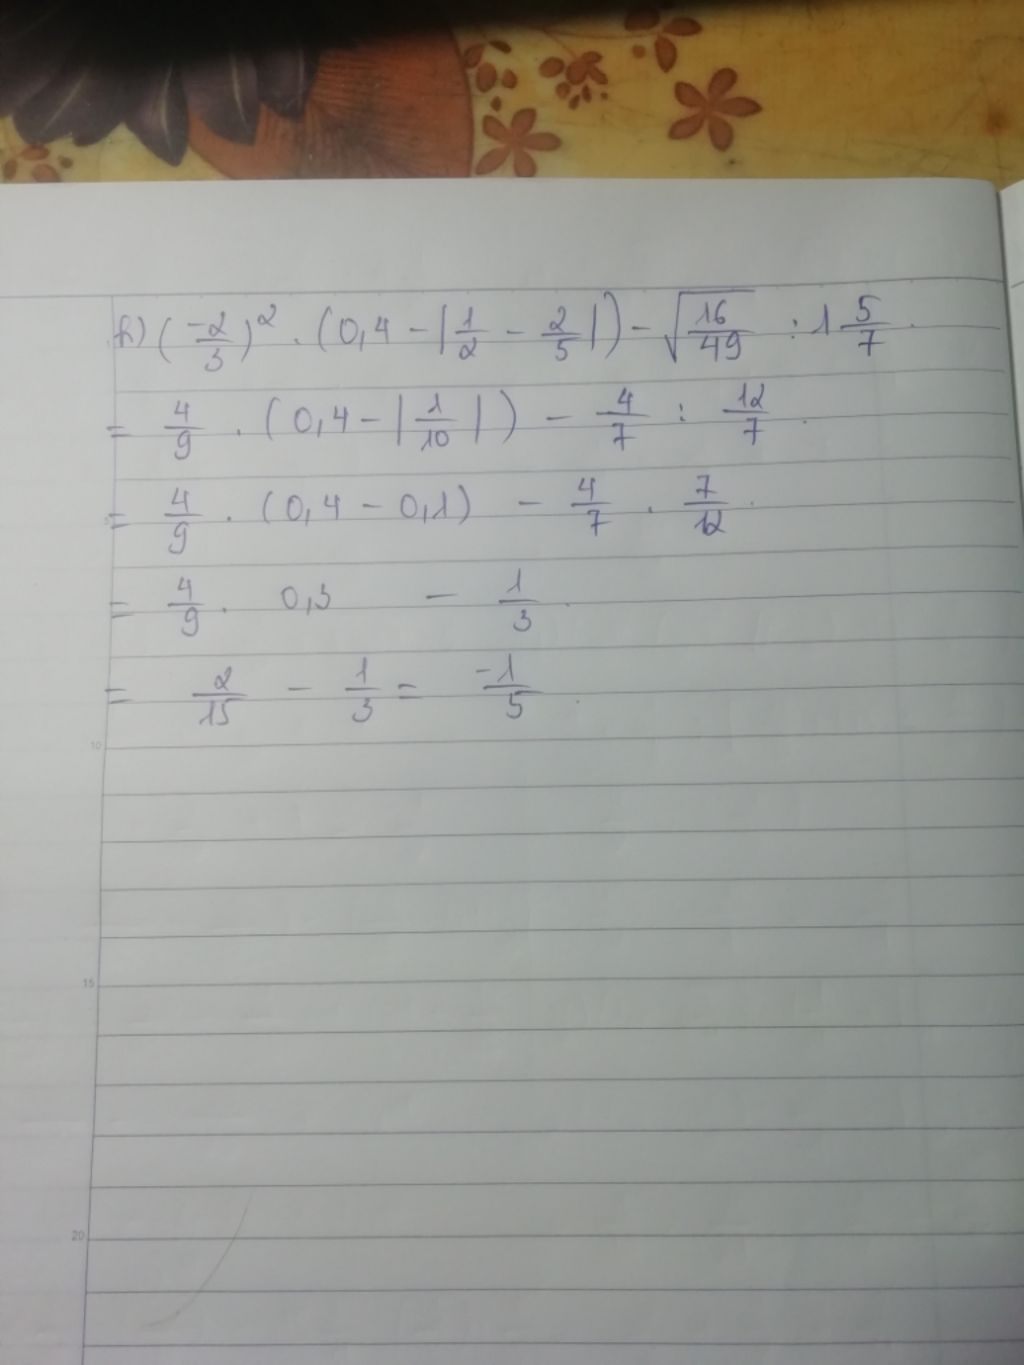 h) (-2/3)² . (0,4 - |1/2 - 2/5|) - √16/49 : 1 5/7
= 4/9 . (0,4 - |1/10|) - 4/7 : 12/7
= 4/9 . (0,4 - 0,1) - 4/7 . 7/12
= 4/9 . 0,3 - 1/3
= 2/15 - 1/3 = -1/5
10
15
20